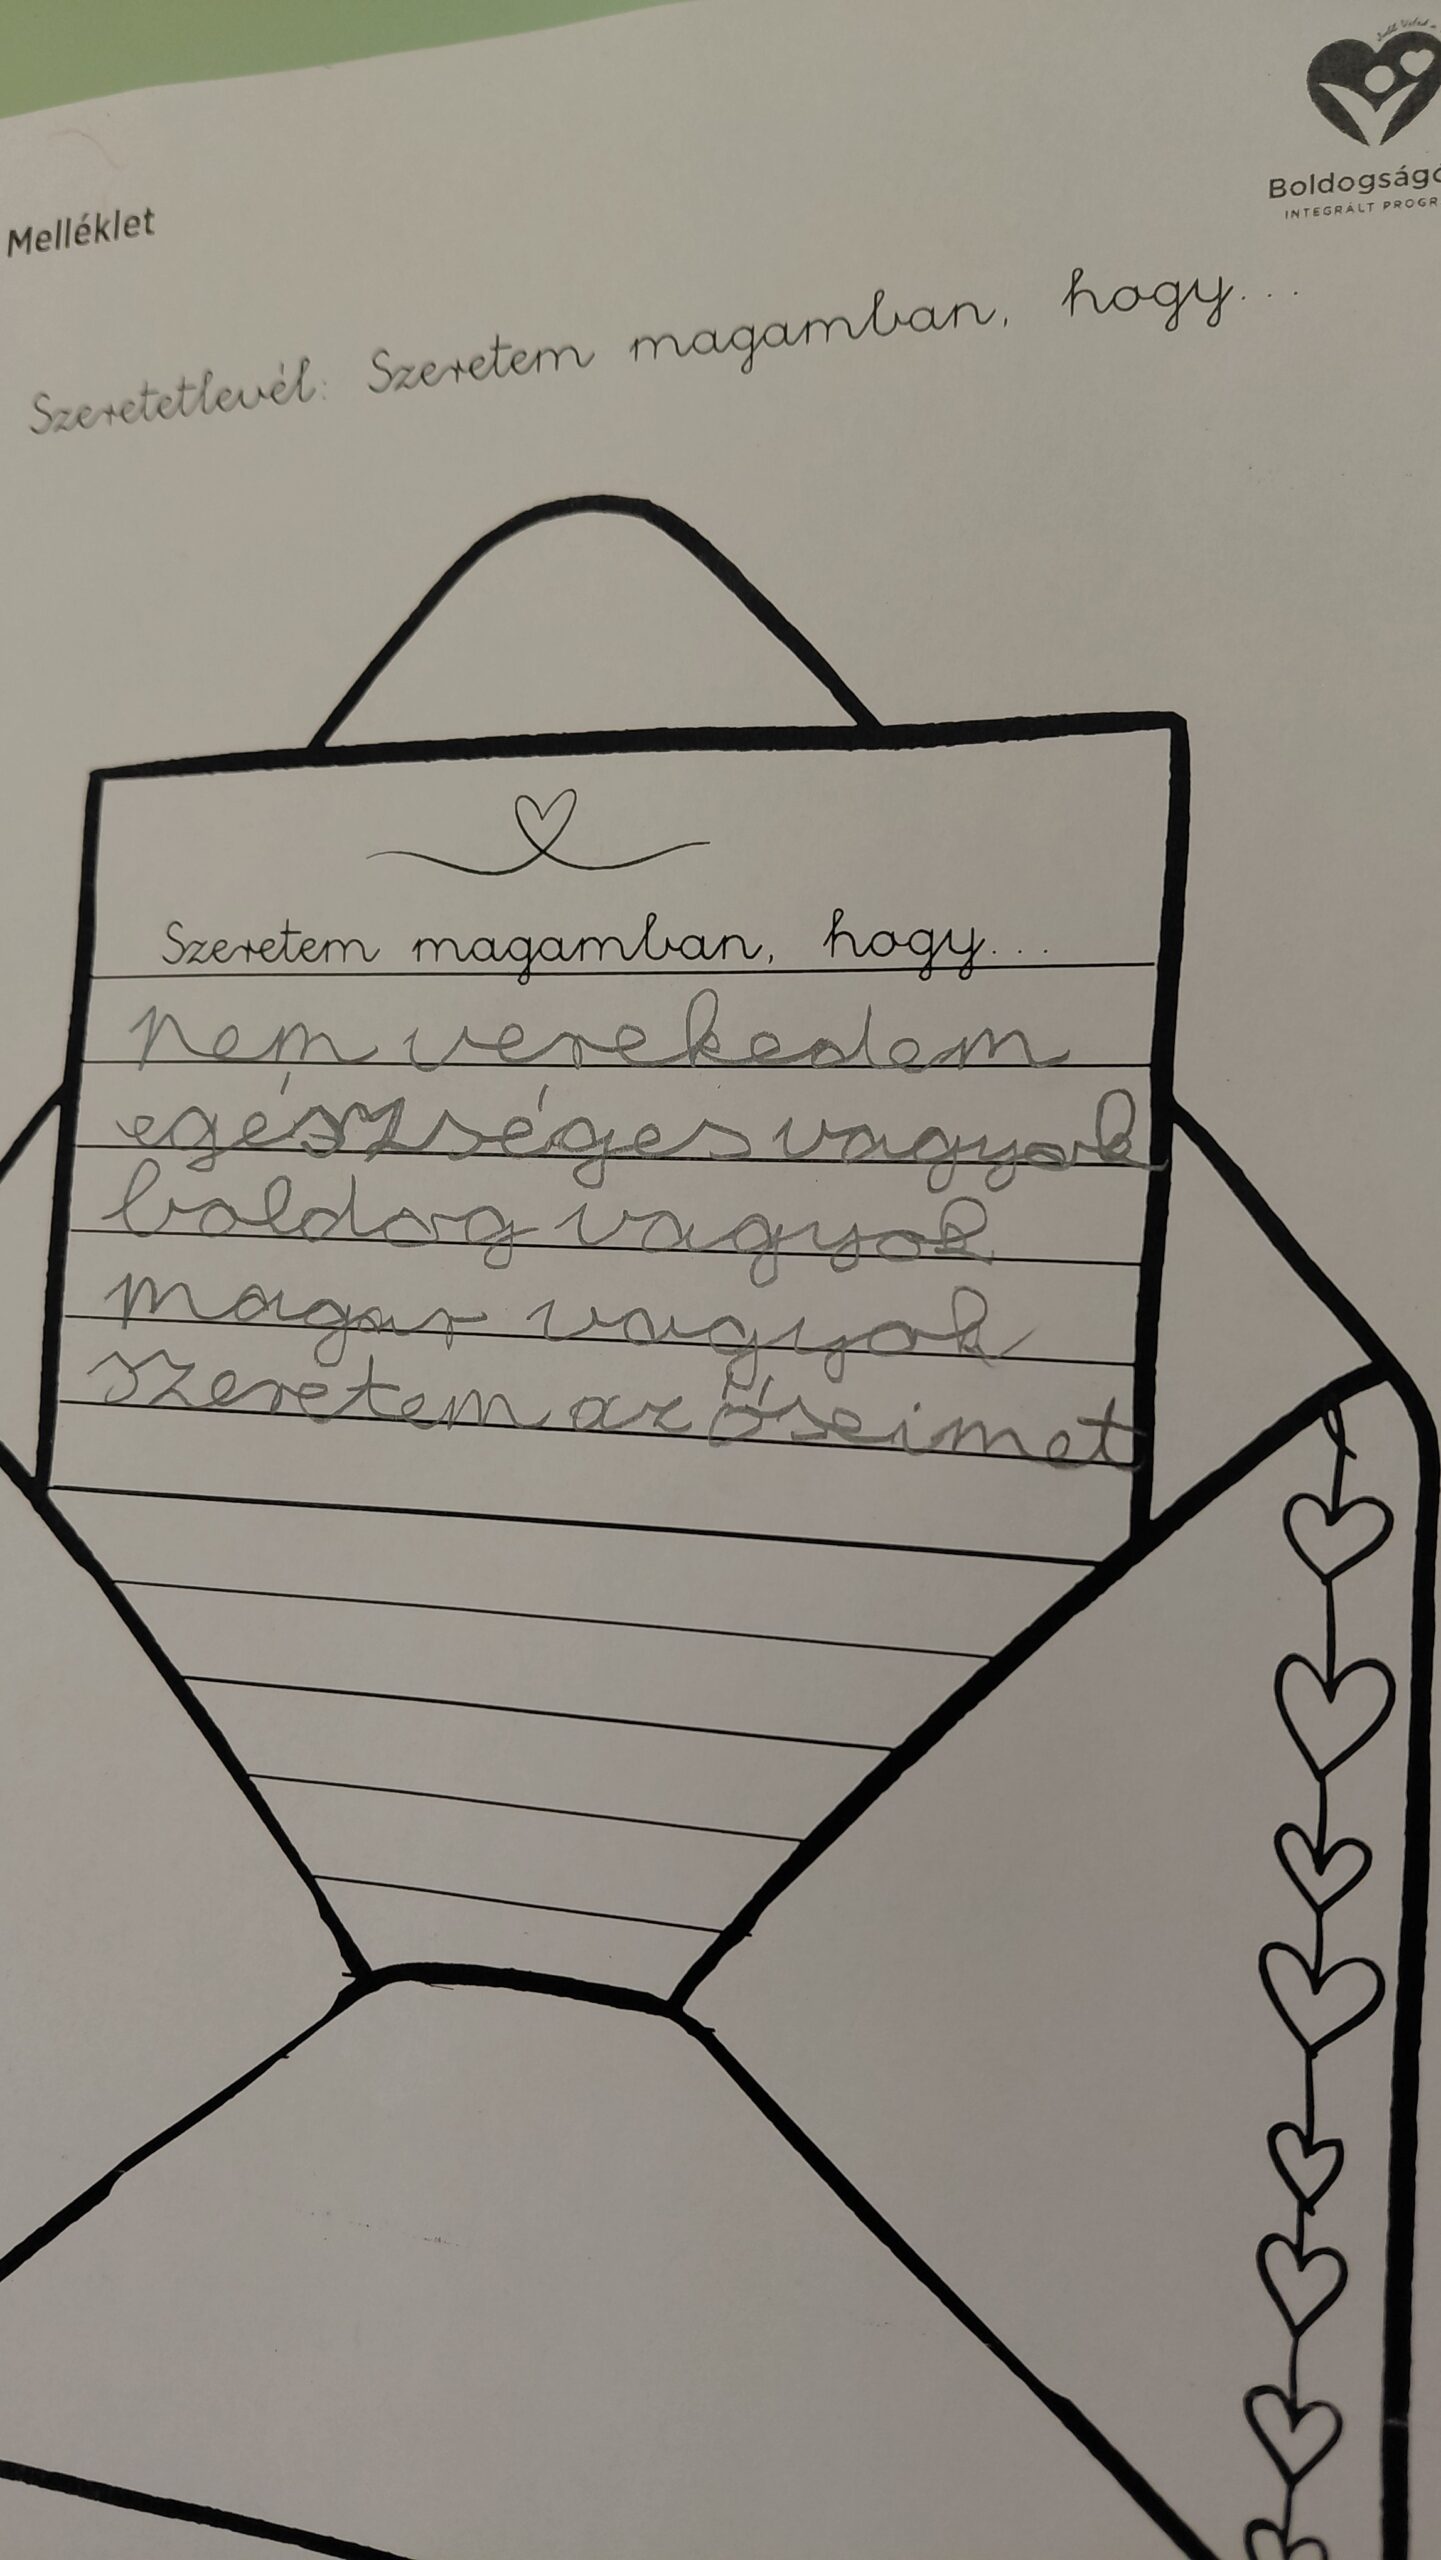 Boldogságó
INTEGRÁLT PROGR
Melléklet
Szeretetlevél: Szeretem magamban, hogy...
Szeretem magamban, hogy...
nem verekedem
egészséges vagyok
boldog vagyok
magas vagyok
szeretem az őseimet